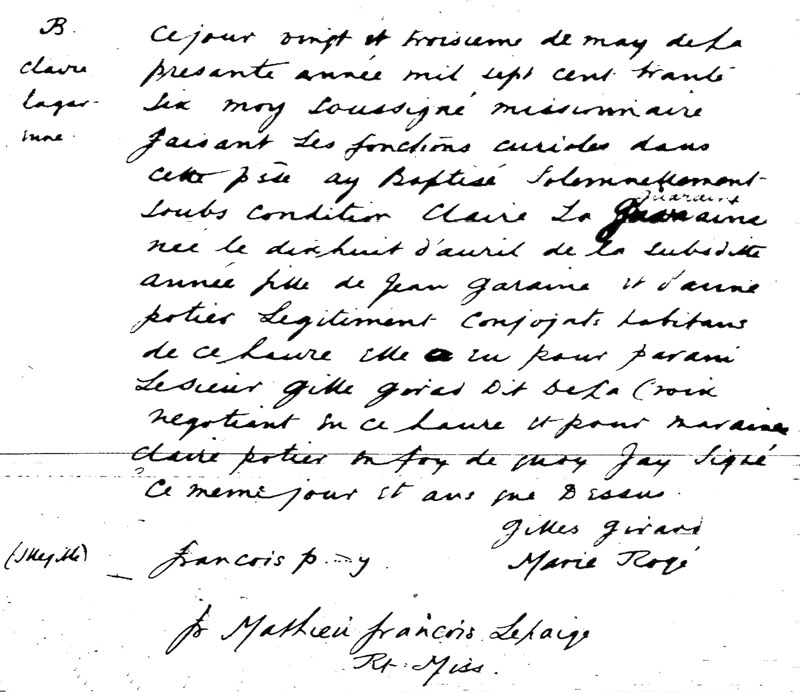 B.
Claire
Lagar-
inne.
Ce jour vingt et troisieme de may de La
presante année mil sept cent trante
Six moy Soussigné missionnaire
faisant Les fonctions curiales dans
cette pšse ay Baptisé Solemnellement
Soubs Condition Claire La Guaraine
née le dixhuit d'auril de la Subsditte
année fille de Jean garaine et d'anne
potier Legitiment Conjojats habitans
de ce haure elle a eu pour parain
Le Sieur gille girad Dit De La Croix
negotiant en ce haure et pour maraine
Claire potier en foy de quoy Jay Signé
Ce meme jour et ans que Dessus.
Gilles Girard
(Illegible) francois p.--y. Marie Rogé
fr Mathieu françois Lepaige
Rt. Miss.